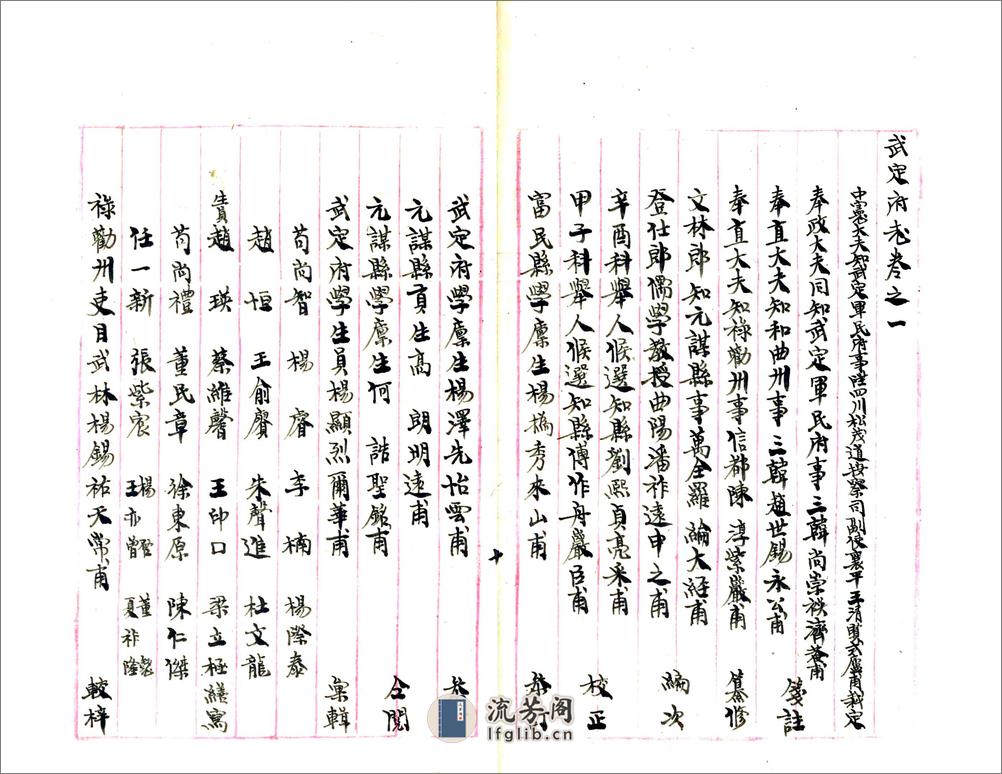 武定府志卷之一
中憲大夫知武定軍民府事陞四川松茂道按察司副使襄平王清賢玄廬甫裁定
奉政大夫同知武定軍民府事三韓尚崇秩濟蒼甫
奉直大夫知和曲州事三韓趙世錫永公甫 箋註
奉直大夫知祿勸州事信都陳淳紫嚴甫 纂修
文林郎知元謀縣事萬全羅綸大經甫
登仕郎儒學教授曲陽潘祚遠申之甫 編次
辛酉科舉人候選知縣劉熙貞亮采甫
甲子科舉人候選知縣傅作舟嚴臣甫 校正
富民縣學廩生楊檇秀來山甫 参訂
十
武定府學廩生楊澤先怡雲甫 叅
元謀縣貢生高 朗明遠甫
元謀縣學廩生何 誥聖銘甫 仝閱
武定府學生員楊顯烈爾華甫 彙輯
荀尚智 楊 睿 李 楠 楊際泰
趙 恒 王俞賡 朱聲進 杜文龍
生員趙 瑛 蔡維馨 王印口 梁立極繕寫
荀尚禮 董民章 徐東原 陳仁傑
任一新 張紫宸 楊 王亦曾 董 夏祚隆
祿勸州吏目武林楊錫祐天常甫 較梓
流芳阁
lfglib.cn